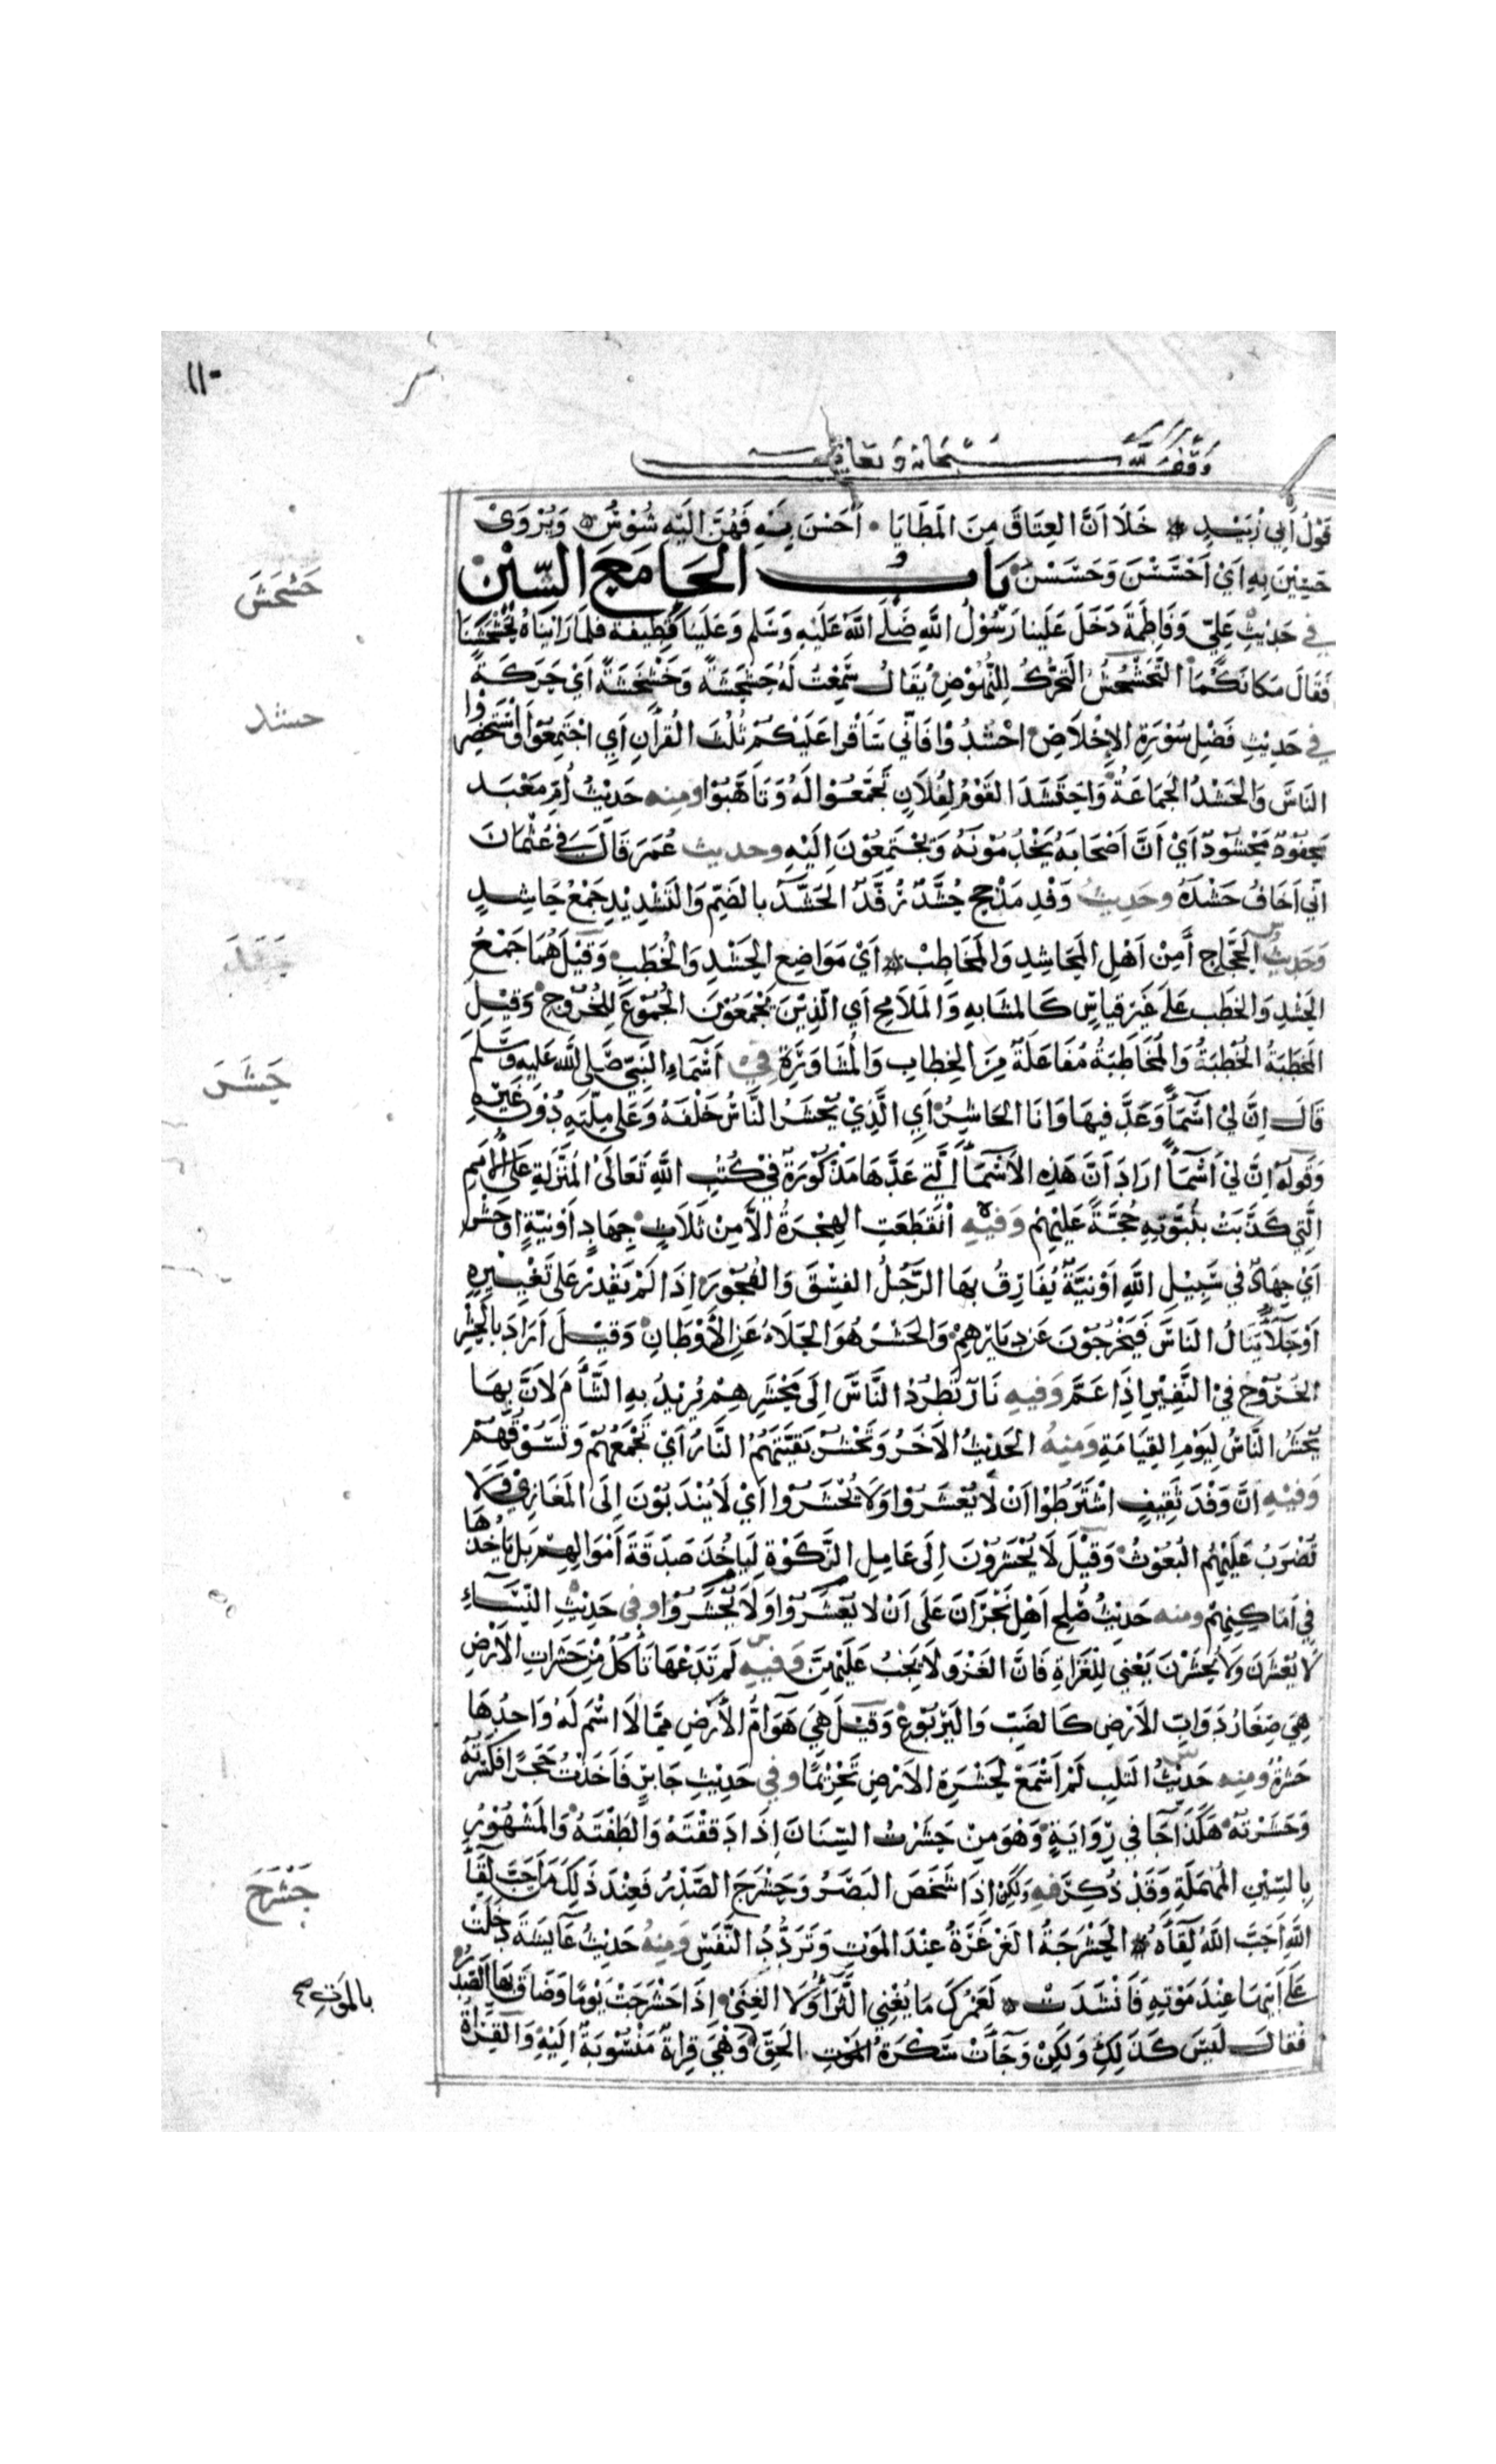 ١١٠
وقف لله سبحانه وتعالى
قَوْلُ أَبِي زُبَيْدٍ خَلَا اَنَّ العِتَاقَ مِنَ المَطَايَا أَحَسْنَ بِهِ فَهُنَّ اِلَيْهِ شُوْسُ وَيُرْوَى
حَسِيْنَ بِهِ اَيْ اَحْسَسْنَ وَحَسَسْنَ بَابُ الحَاءِ مَعَ الشِّيْن
حَشْحَشَ
في حَدِيْثِ عَلِيٍّ وَفَاطِمَةَ دَخَلَ عَلَينا رَسُوْلُ اللَّهِ صَلَّى اللَّهُ عَلَيْهِ وَسَلَّم وَعَلَيْنا قَطِيفَة فَلَمَّا رَاَيْنَاهُ تَحَشْحَشْنَا
فَقَالَ مَكانَكُمَا التَّحَشْحُشُ التَّحَرُّكُ لِلنُّهُوْضِ يُقَالُ سَمِعْتُ لَهُ حَشْحَشَةً وَخَشْخَشَةً اَيْ حَرَكَةً
حشد
في حَدِيْثِ فَضْلِ سُوْرَةِ الإِخْلَاصِ احْشُدُوْا فَاِنِّي سَاَقْرَا عَلَيْكُمْ ثُلُثَ القُرْاٰنِ اَيِ اجْتَمِعُوْا وَاسْتَحْضِرُوا
النَّاسَ وَالحَشْدُ الجَمَاعَةُ وَاحْتَشَدَ القَوْمُ لِفُلَانٍ تَجَمَّعُوْا لَهُ وَتَاَهَّبُوْا ومنه حَدِيْثُ اُمِّ مَعْبَد
مَحْفُوْدٌ مَحْشُوْدٌ اَيْ اَنَّ اَصْحَابَهُ يَخْدُمُوْنَهُ وَيَجْتَمِعُوْنَ اِلَيْهِ وحديث عُمَرَ قَالَ فِي عُثْمَانَ
اِنِّي اَخَافُ حَشْدَهُ وحَدِيثُ وَفْدِ مَذْحِجٍ حُشَّدٌ رُفَّدٌ الحُشَّدُ بالضَمِّ وَالتَشْدِيْدِ جَمْعُ حَاشِدٍ
وَحَدِيثُ الحَجَّاجِ أَمِنْ اَهْلِ المَحَاشِدِ وَالمَخَاطِبْ اَيْ مَوَاضِعِ الحَشْدِ وَالخُطَبِ وَقِيْلَ هُمَا جَمْعُ
الحَشْدِ وَالخَطْبِ عَلَى غَيْرِ قِيَاسٍ كَالمَشَابِهِ وَالمَلَامِحِ اَيِ الَّذِيْنَ يَجْمَعُوْنَ الجُمُوْعَ لِلخُرُوْجِ وَقِيْلَ
المَخْطَبَةُ الخُطْبَةُ وَالمُخَاطَبَةُ مُفَاعَلَةٌ مِنَ الخِطَابِ وَالمُشَاوَرَةِ
حَشَرَ
في اَسْمَاءِ النَّبِيِّ صَلَّى اللَّه عَلَيهِ وَسَلَّمَ
قَالَ اِنَّ لِيْ اَسْمَاءً وَعَدَّ فِيهَا وَاَنَا الحَاشِرُ اَيِ الَّذِيْ يُحْشَرُ النَّاسُ خَلْفَهُ وَعَلَى مِلَّتِهِ دُوْنَ غَيْرِهِ
وَقَوْلُهُ اِنَّ لِيْ اَسْمَاءً ارَادَ اَنَّ هَذِهِ الاَسْمَاءَ الَّتِي عَدَّهَا مَذْكُوْرَةٌ فِي كُتُبِ اللَّهِ تَعَالَى المُنَزَّلَةِ عَلَى الأُمَمِ
الَّتِي كَذَّبَتْ بِنُبُوَّتِهِ حُجَّةً عَلَيْهِمْ وَفيهِ انْقَطَعَتِ الهِجْرَةُ الاَّ مِنْ ثَلَاثٍ جِهَادٍ اَوْ نِيَّةٍ اَوْ حَشْرٍ
اَيْ جِهَادٌ فِي سَبِيْلِ اللَّهِ اَوْ نِيَّةٌ يُفَارِقُ بِهَا الرَّجُلُ الفِسْقَ وَالفُجُوْرَ اِذَا لَمْ يَقْدِرْ عَلَى تَغْيِيرِهِ
اَوْ جَلَاءٌ يَنَالُ النَاسَ فَيَخْرُجُوْنَ عَنْ دِيَارِهِمْ وَالحَشْرُ هُوَ الجَلَاءُ عَنِ الأَوْطَانِ وَقِيْلَ اَرَادَ بِالحَشْرِ
الخُرُوْجَ فِيْ النَّفِيْرِ اِذَا عَمَّ وَفِيهِ نَارٌ تَطْرُدُ النَّاسَ اِلَى مَحْشَرِهِمْ يُرِيْدُ بِهِ الشَّأْمَ لاَنَّ بِهَا
يُحْشَرُ النَّاسُ لِيَوْمِ القِيَامَةِ وَمِنِهُ الحَدِيْثُ الاٰخَرُ وَتَحْشُرُ بَقِيَّتَهُمُ النَّارُ اَيْ تَجْمَعُهُمْ وَتَسُوْقُهُمْ
وَفِيْهِ اَنَّ وَفْدَ ثَقِيفٍ اشْتَرَطُوْا اَنْ لَا يُعْشَرُوْا وَلَا يُحْشَرُوْا اَيْ لَا يُنْدَبُوْنَ اِلَى المَغَازِيْ وَلَا
تُضْرَبُ عَلَيْهِمُ البُعُوْثُ وَقِيْلَ لَا يُحْشَرُوْنَ اِلَى عَامِلِ الزَّكَوٰةِ لِيَاْخُذَ صَدَقَةَ اَمْوَالِهِمْ بَلْ يَاْخُذُهَا
فِي اَمَاكِنِهِمْ ومنه حَدِيْثُ صُلْحِ اَهْلِ نَجْرَانَ عَلَى اَنْ لا يُعْشَرُوْا وَلَا يُحْشَرُوْا وفي حَدِيْثِ النِّسَاءِ
لَا يُعْشَرْنَ وَلَا يُحْشَرْنَ يَعْنِي لِلْغَزَاةِ فَاِنَّ الغَزْوَ لَا يَجِبُ عَلَيْهِنَّ وَفيهِ لَمْ تَدَعْهَا تَأْكُلُ مِنْ حَشَرَاتِ الاَرْضِ
هِيَ صِغَارُ دَوَابِّ الاَرْضِ كَالضَبِّ وَاليَرْبُوْعِ وَقِيْلَ هِيَ هَوَامُّ الاَرْضِ مِمَّا لَا اسْمَ لَهُ وَاحِدُهَا
حَشَرَةٌ ومنِه حَدِيْثُ التَلِبِ لَمْ اَسْمَعْ لِحَشَرَةِ الاَرْضِ تَحْرِيْمًا وفي حَدِيْثِ جَابِرٍ فَاَخَذْتُ حَجَرًا فَكَسَرْتُهُ
وَحَشَرْتُهُ هَكَذَا جَاءَ في رِوَايَةٍ وَهُوَ مِنْ حَشَرْتُ السِّنَانَ اِذَا دَقَقْتَهُ وَالطَفْتَهُ وَالمَشْهُوْرُ
بِالسِّيْنِ المُهْمَلَةِ وَقَدْ ذُكِرَ
حَشْرَجَ
فِيهِ وَلَكِنْ اِذَا شَخَصَ البَصَرُ وَحَشْرَجَ الصَّدْرُ فَعِنْدَ ذَلِكَ مَنْ اَحَبَّ لِقَاءَ
اللَّهِ اَحَبَّ اللَّهُ لِقَاءَهُ الحَشْرَجَةُ الغَرْغَرَةُ عِنْدَ المَوْتِ وَتَرَدُّدُ النَّفَسِ وَمِنهُ حَدِيْثُ عَائِشَةَ دَخَلَتْ
عَلَى اَبِيْهَا عِنْدَ مَوْتِهِ فَاَنْشَدَتْ لَعَمْرُكَ مَا يُغْنِي الثَّرَاءُ وَلَا الغِنَى اِذَا حَشْرَجَتْ يَوْمًا وَضَاقَ بِهَا الصَّدْرُ
بِالمَوْتِ صح
فَقَالَ لَيْسَ كَذَلِكِ وَلَكِنْ وَجَاءَتْ سَكْرَةُ المَوْتِ الحَقِّ وَهْيَ قِرَاءَةٌ مَنْسُوْبَةٌ اِلَيْهِ وَالقِرَاءَةُ